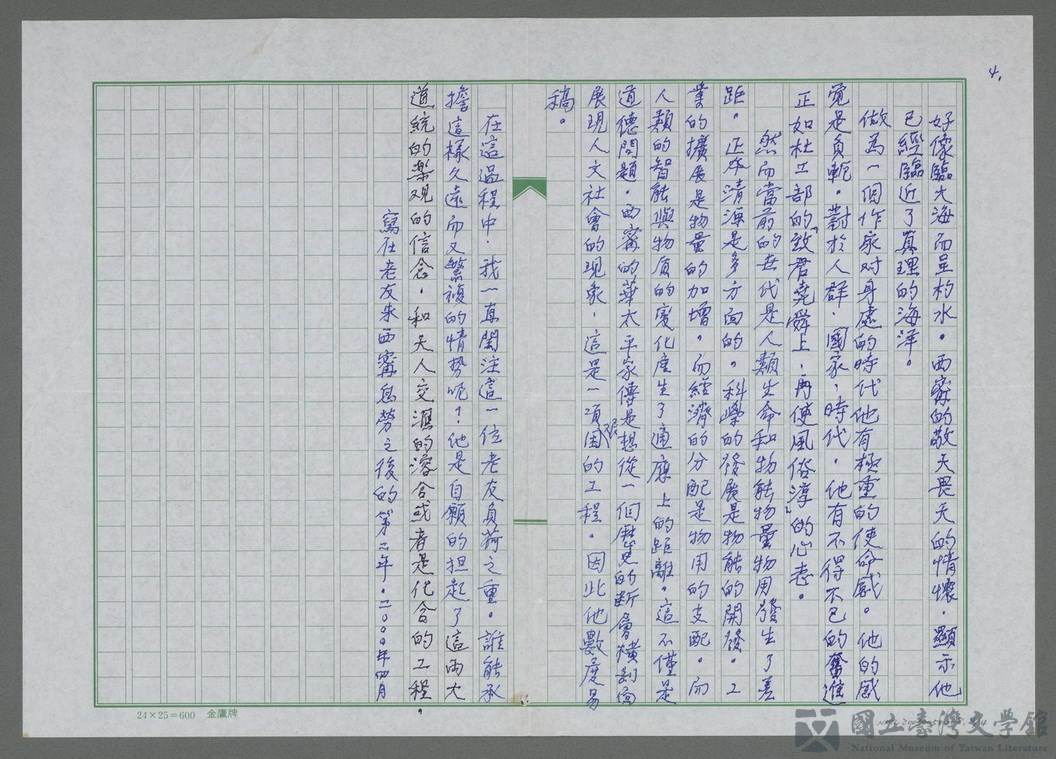 4.
好像臨大海而呈杓水。西甯的敬天畏天的情懷，顯示他
已經臨近了真理的海洋。
做為一個作家对身處的時代他有極重的使命感。他的感
覺是負軛。對於人群，國家，時代，他有不得不已的奮進
正如杜工部的「致君堯舜上，再使風俗淳」的心志。
然而當前的世代是人類生命和物能物量物用發生了差
距。正本清源是多方面的。科學的發展是物能的開發。工
業的擴展是物量的加增。而經濟的分配是物用的支配。而
人類的智能與物质的变化產生了適應上的距離。這不僅是
道德問題。西甯的華太平家傳是想從一個歷史的断層橫剖面
展現人文社會的現象，這是一項困艰的工程。因此他數度易
稿。
在這過程中，我一直関注這一位老友負荷之重。誰能承
擔這樣久遠而又繁複的情势呢？他是自願的担起了這兩大
道統的樂观的信念，和天人交滙的溶合或者是化合的工程
。
寫在老友朱西甯息勞之後的第二年。二〇〇〇年四月
24×25=600 金鷹牌
國立臺灣文學館
National Museum of Taiwan Literature